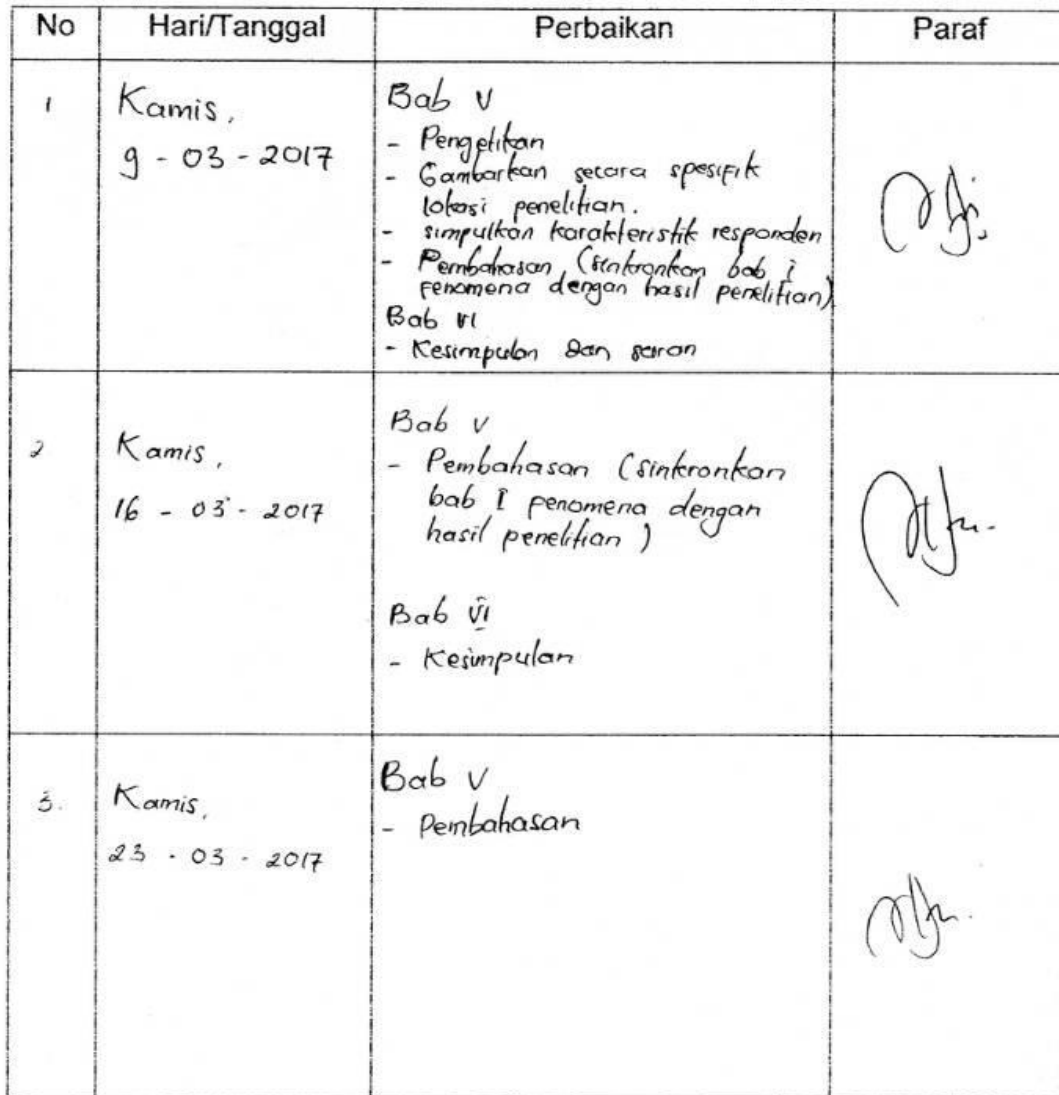 No Hari/Tanggal Perbaikan Paraf
1 Kamis, 9 - 03 - 2017
Bab V
- Pengetikan
- Gambarkan secara spesifik
lokasi penelitian.
- simpulkan karakteristik responden
- Pembahasan (sinkronkan bab I
fenomena dengan hasil penelitian)
Bab VI
- Kesimpulan dan saran
2 Kamis, 16 - 03 - 2017
Bab V
- Pembahasan (sinkronkan
bab I fenomena dengan
hasil penelitian )
Bab VI
- Kesimpulan
3. Kamis, 23 - 03 - 2017
Bab V
- Pembahasan